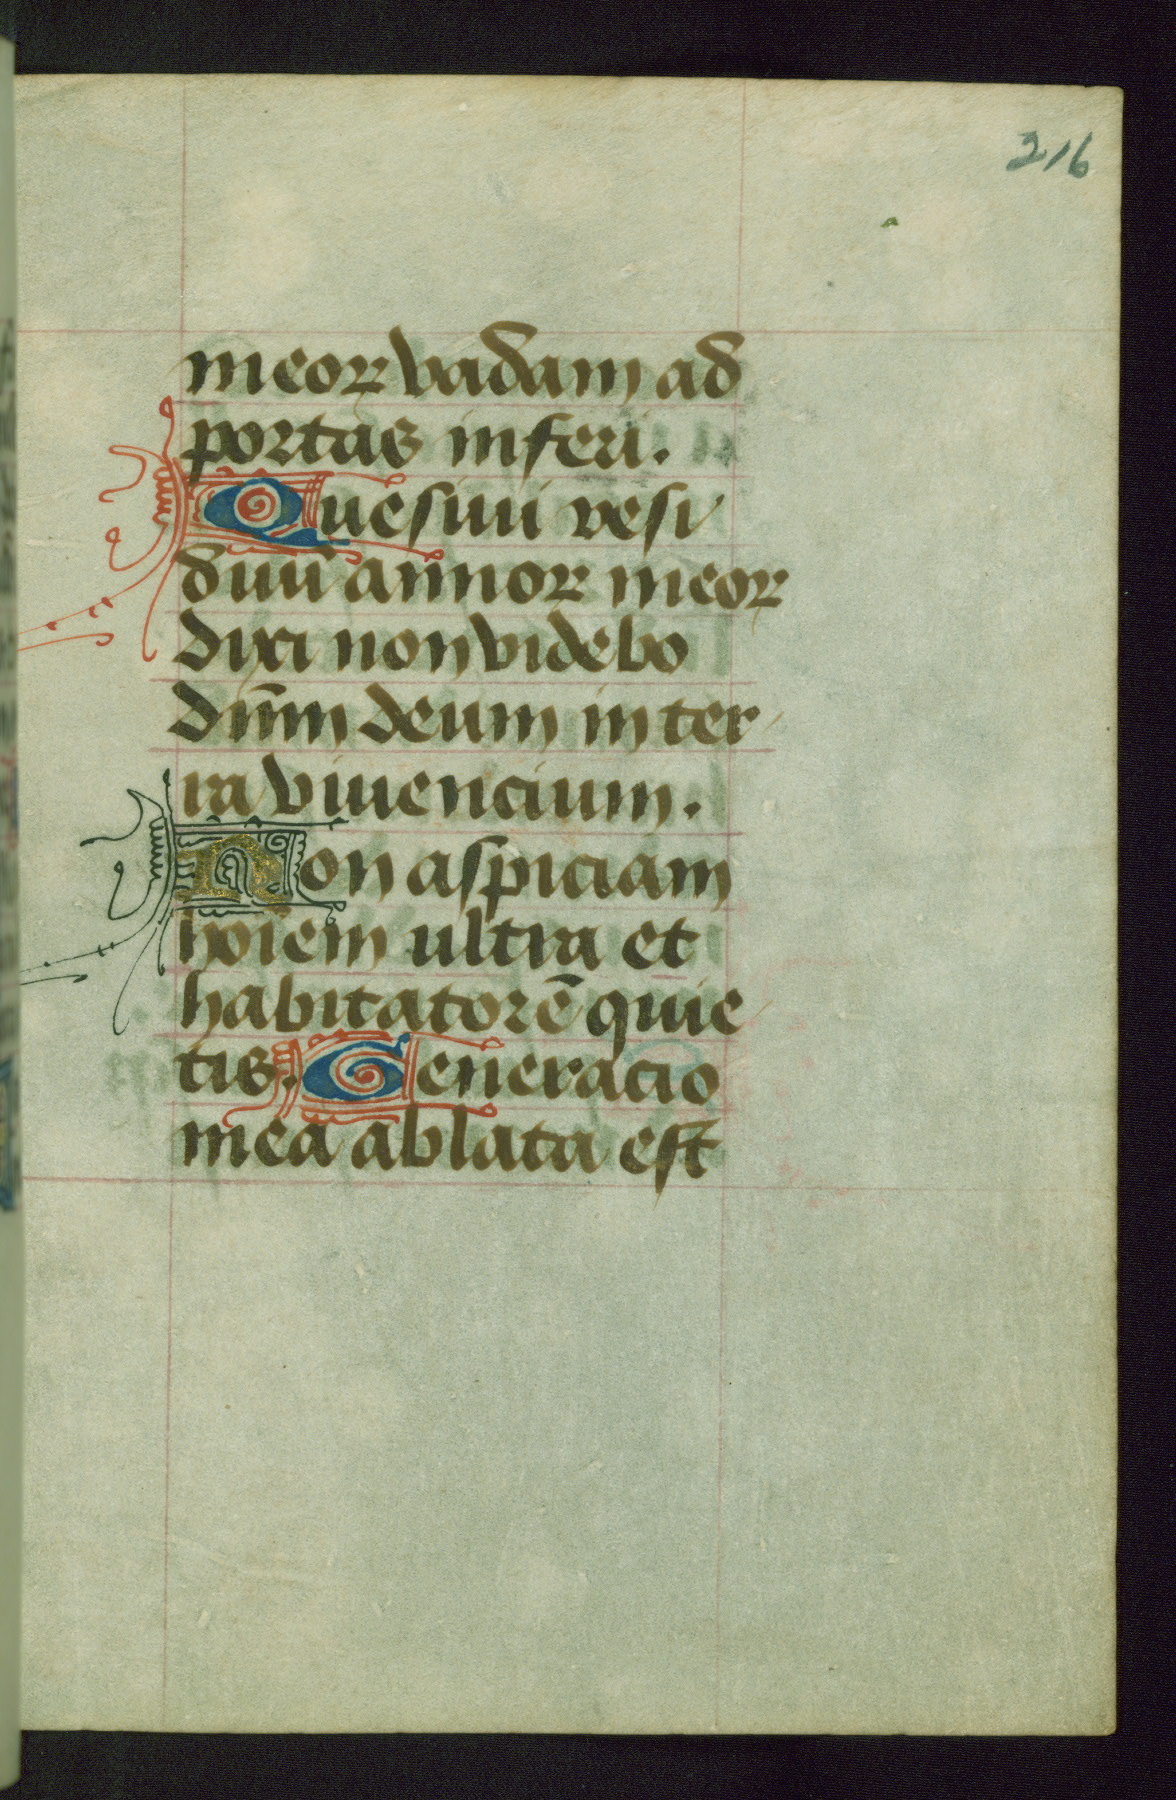 216
meoꝝ vadam ad
portas inferi.
Quesiui resi
duū annoꝝ meoꝝ
dixi non videbo
dn̄m deum in ter
ra viuencium.
Non aspiciam
hoiem ultra et
habitatorē quie
tis. Generacio
mea ablata est